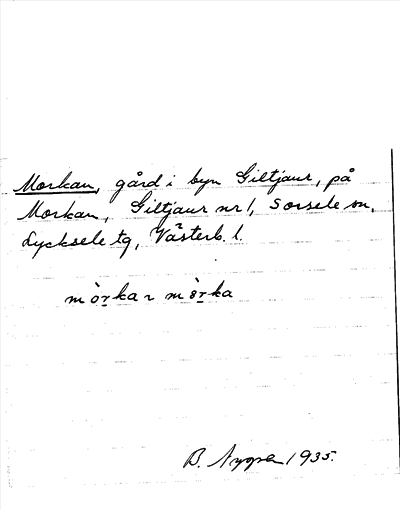 Morkan, gård i byn Giltjaur, på
Morkan, Giltjaur nr 1, Sorsele sn,
Lycksele tg, Västerb. l.
mòrkan mòrka
B. 1935.